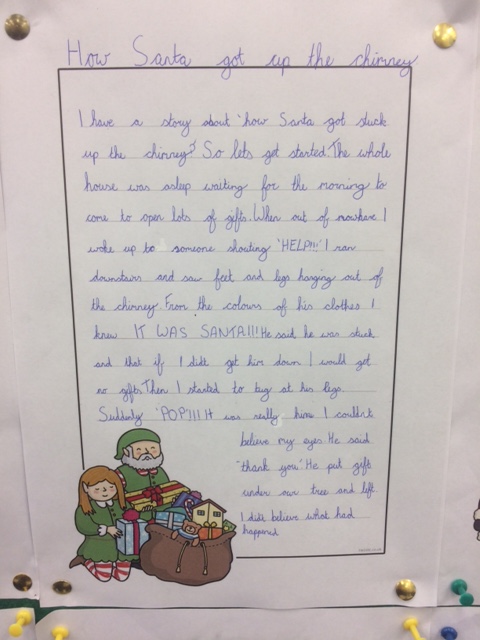 How Santa got up the chimney
I have a story about 'how Santa got stuck
up the chimney?' So lets get started. The whole
house was asleep waiting for the morning to
come to open lots of gifts. When out of nowhere I
woke up to someone shouting 'HELP!!!' I ran
downstairs and saw feet and legs hanging out of
the chimney. From the colours of his clothes I
knew IT WAS SANTA!!!! He said he was stuck
and that if I didt get him down I would get
no gifts. Then I started to tug at his legs.
Suddenly 'POP'!!!! It was really him I couldn't
believe my eyes. He said
'thank you.' He put gift
under our tree and left.
I didt believe what had
happened